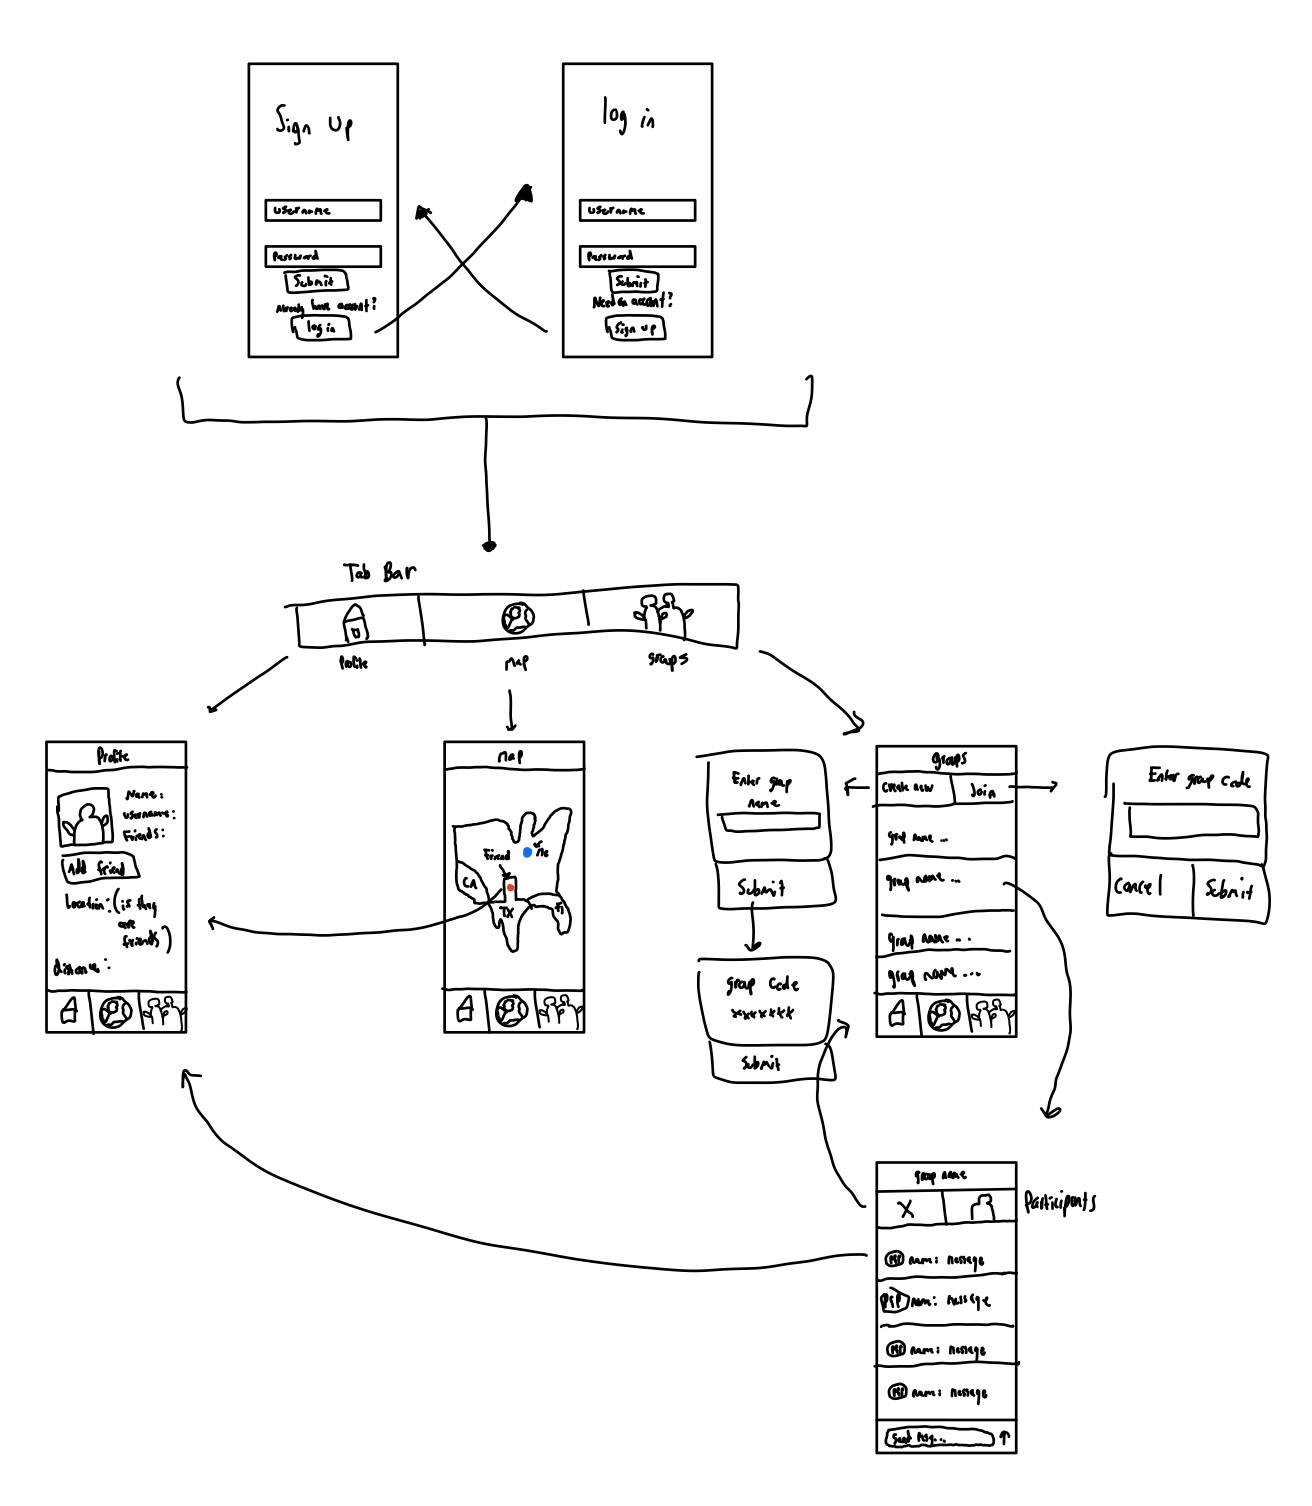 Sign Up
username
Password
Submit
Already have account?
log in
log in
username
Password
Submit
Need an account?
Sign up
Tab Bar
Profile
map
groups
Profile
Name:
username:
Friends:
Add friend
Location: (is they
are
friends)
distance:
map
Friend
me
CA
TX
Fl
Enter group
name
Submit
group code
xxxxxxx
Submit
groups
create new
Join
group name ...
group name ...
group name ...
group name ...
Enter group code
Cancel
Submit
group name
X
Participants
PFP name: message
PFP name: message
PFP name: message
PFP name: message
Send msg...